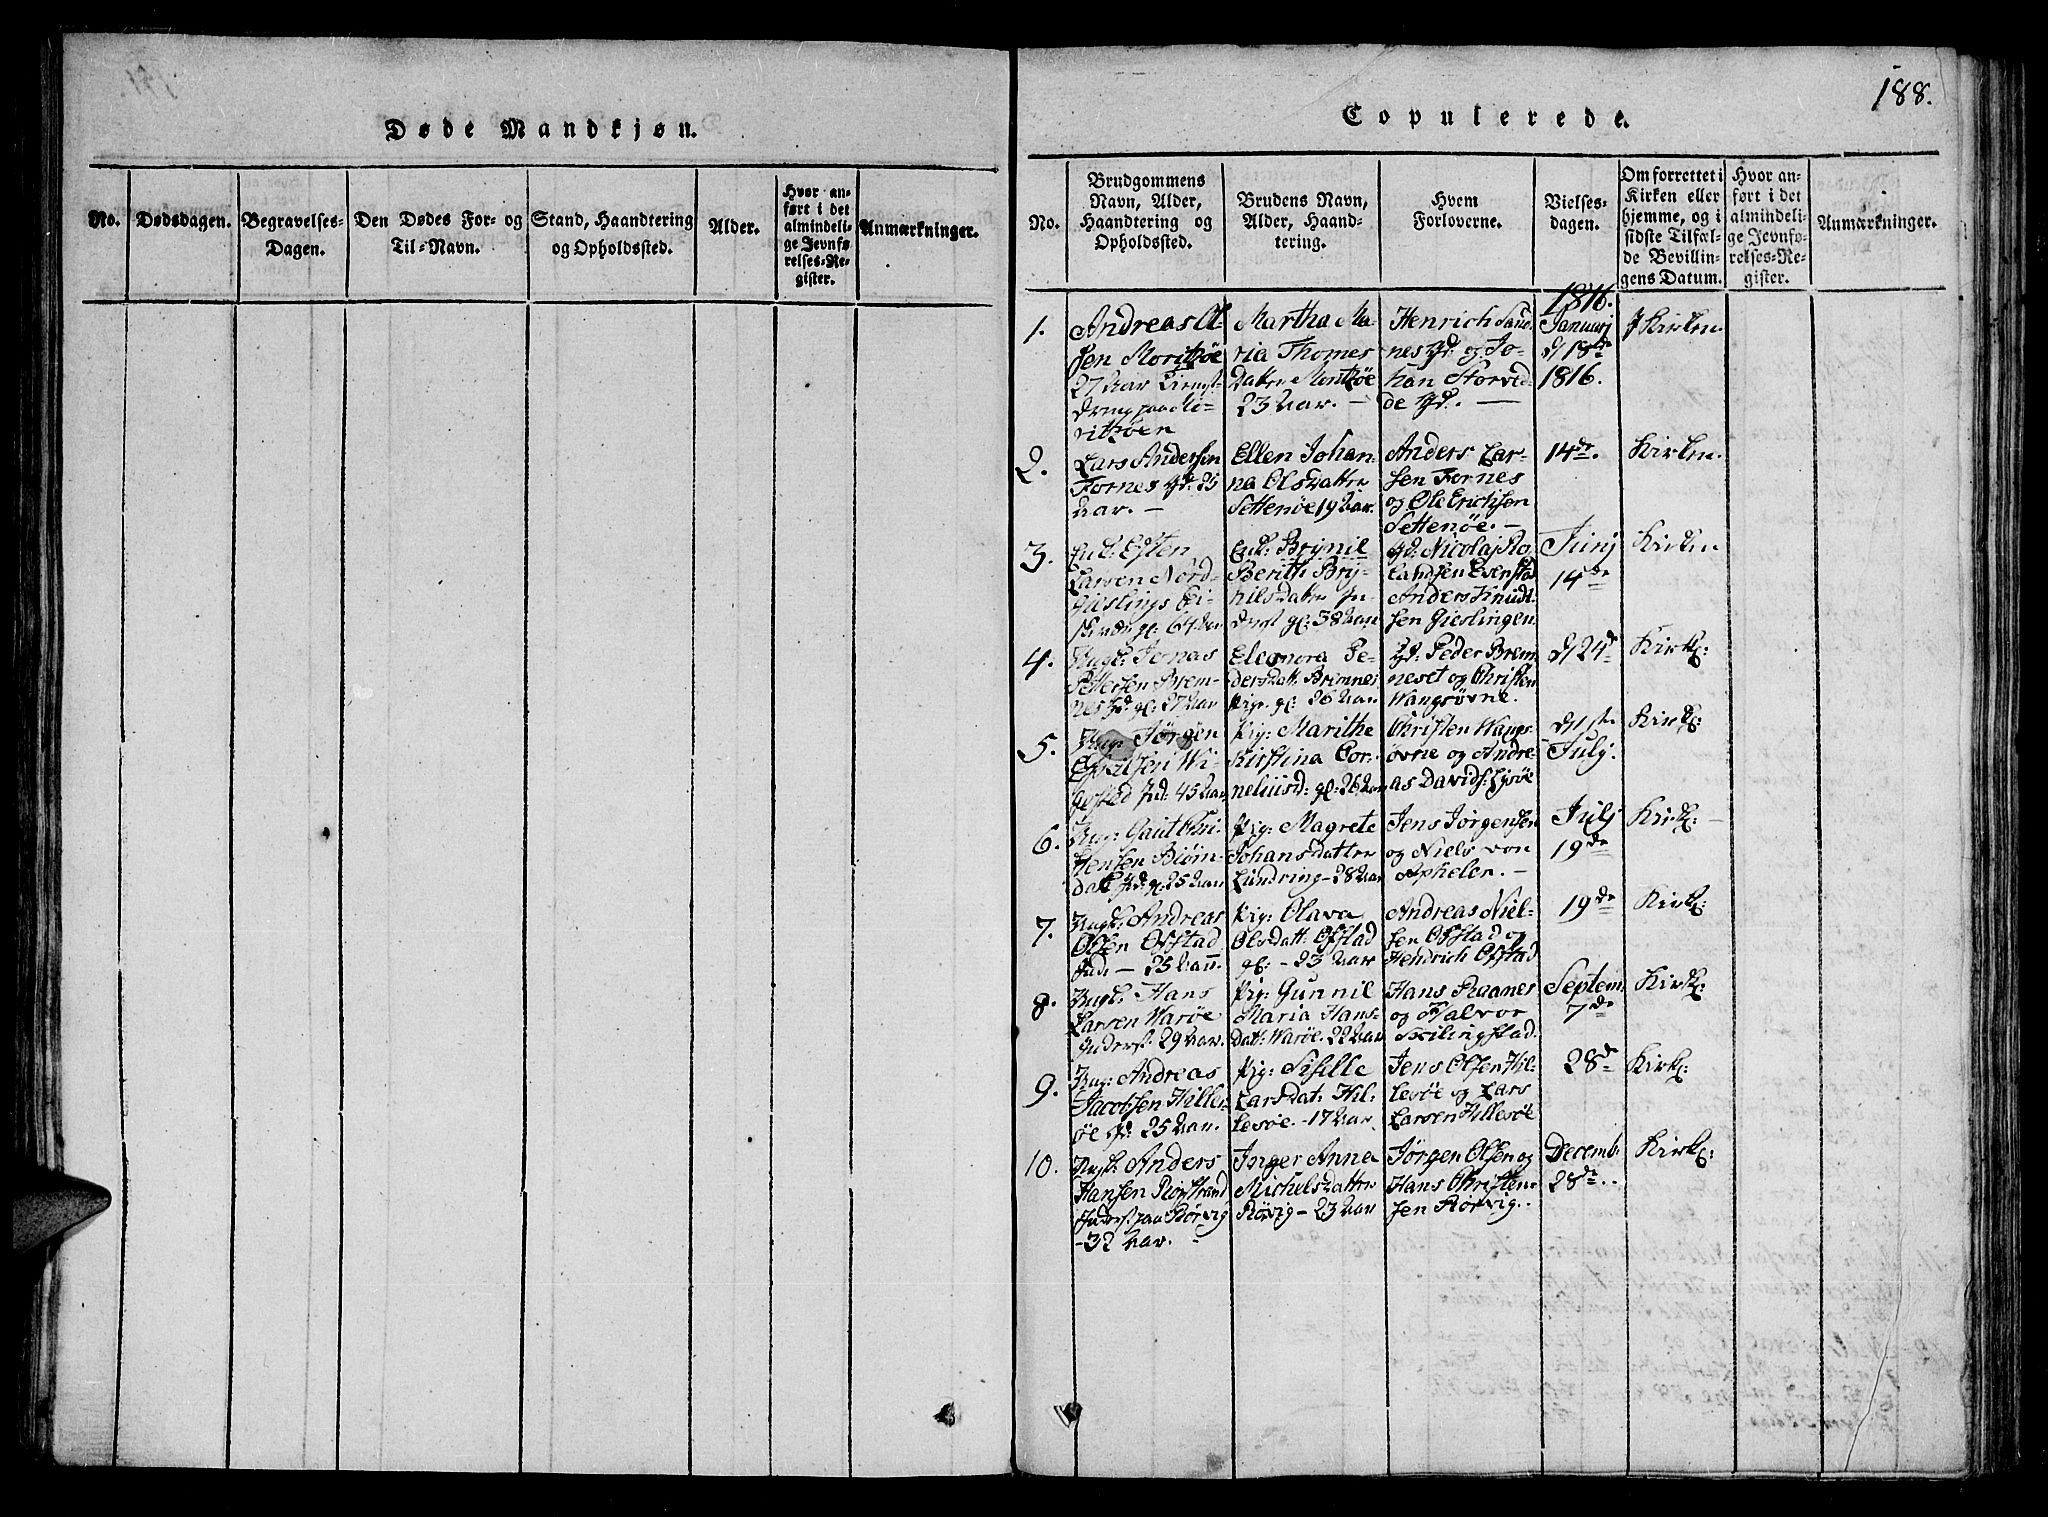 Døde Mandkjøn.
No.
Dødsdagen.
Begravelses-
Dagen.
Den Dødes For- og
Til-Navn.
Stand, Haandtering
og Opholdssted.
Alder.
Hvor an-
ført i det
almindeli-
ge Jevnfø-
relses-Re-
gister.
Anmærkninger.
188.
Copulerede.
No.
Brudgommens
Navn, Alder,
Haandtering og
Opholdssted.
Brudens Navn,
Alder, Haand-
tering.
Hvem
Forloverne.
Vielses-
dagen.
Om forrettet i
Kirken eller
hjemme, og i
sidste Tilfæl-
de Bevillin-
gens Datum.
Hvor an-
ført i det
almindeli-
ge Jevnfø-
relses-Re-
gister.
Anmærkninger.
1816.
1.
Andreas Ol
sen Moritzøe
27 Aar
ritzøen
Martha Ma-
ria Thomes
Datter Moritzøe
23 Aar. –
Henrich Sand
nes gd. og Jo-
han Storvid
de gd. –
Januarj
d 18de
1816.
J Kirken
2.
Lars Andersen
Fornes gd. 25
aar. –
Ellen Johan-
na Olsdatter
Settenøe 19 Aar.
Anders Lar-
sen Fornes
og Ole Erichsen
Settenøe. –
14de.
Kirken.
3.
Enk: Esten
Larsen Nord-
Gieslings
64 Aar
Enk: Brynil
Berith Bry-
nilsdatter In-
derst gl: 58 Aar
gd: Nicolaj Ro
landsen Evensta
Anders Knudt-
sen Gieslingen
Junj
14de
Kirken
4.
Ungk: Jonas
Pettersen Brem-
nes gd: gl: 27 Aar
Eleonora Pe-
dersdatt Brimnes
Pige gl: 26 Aar
gd: Peder Brem
neset og Christen
Wangsøvne.
d 24d
Kirk:
5.
Ung: Jørgen
45 Aar
Pig: Marithe
Kirstina Cor-
neliusd: gl: 26 Aar
Christen Wangs
øvne og Andre-
as Davids: Lysøe
d 1ste
July.
Kirk:
6.
Ung: Gaut Chri
stensen Biörn-
dal gd: gl 25 Aar
Pig: Magrete
Johansdatter
Lundring – 28 Aar
Jens Jørgensen
og Niels von
Aphelen. –
Julj
19de
Kirk: –
7.
Ungk: Andreas
Olsen Ofstad
Ind: – 25 Aar.
Pig: Olava
Olsdatt: Ofstad
gl: – 23 Aar
Andreas Niel-
sen Ofstad og
Hendrich Ofstad
19de
Kirk:
8.
Ungk: Hans
Larsen Warøe
Inderst. 29 Aar.
Pig: Gunnil
Maria Hans-
dat: Warøe. 22 Aar
Hans Raanes
og Halvor
Skilingstad.
Septem
7de
Kirk:
9.
Ung: Andreas
Jacobsen Hilles-
øe gd: 25 Aar.
Pig: Sisille
Larsdat: Hil-
lesøe. – 17 Aar
Jens Olsen Hil-
lesøe og Lars
Larsen Hillesøe
28d
Kirk:
10.
Ungk: Anders
Hansen Rørstrand
Inderst paa Rørvig
– 32 Aar.
Inger Anna
Michelsdatter
Rørvig – 23 Aar
Jørgen Olsen og
Hans Christen-
sen Rørvig.
Decemb.
28de.
Kirk: